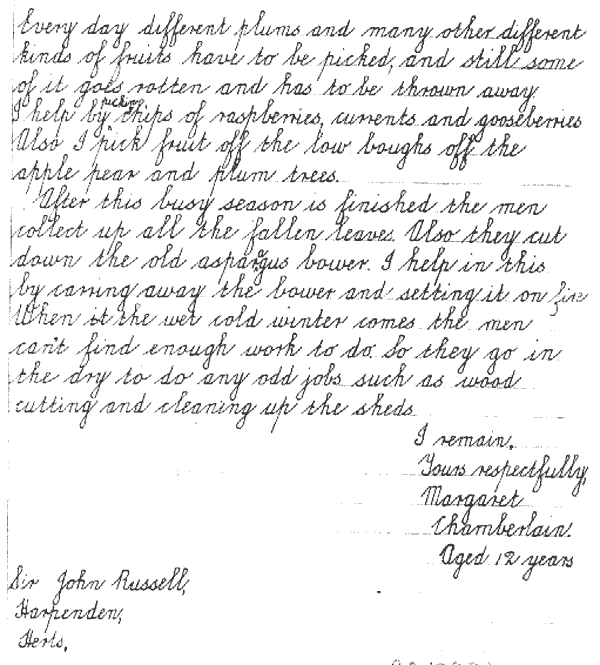 Every day different plums and many other different
kinds of fruits have to be picked, and still some
of it goes rotten and has to be thrown away.
I help by picking chips of raspberries, currents and gooseberries
Also I pick fruit off the low boughs off the
apple pear and plum trees.
After this busy season is finished the men
collect up all the fallen leaves. Also they cut
down the old aspargus bower. I help in this
by carring away the bower and setting it on fire
When it the wet cold winter comes the men
can't find enough work to do. So they go in
the dry to do any odd jobs such as wood
cutting and cleaning up the sheds.
I remain,
Yours respectfully,
Margaret
Chamberlain.
Aged 12 years
Sir John Russell,
Harpenden,
Herts.